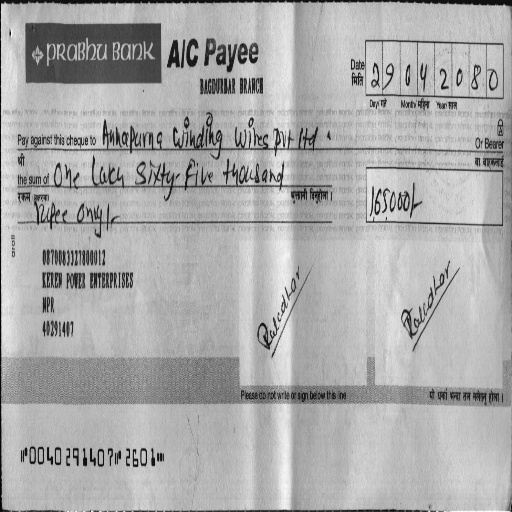 PRABHU BANK
A/C Payee
BAGDURBAR BRANCH
Date
मिति
29 04 2080
Day/ गते Month/ महिना Year/ साल
Pay against this cheque to Annapurna Winding Wires Pvt ltd.
Or Bearer
श्री
वा वाहकलाई
the sum of One Lakh Sixty-five thousand
रकम
rupee only/-
165000/-
0870083327800012
KEREN POWER ENTERPRISES
NPR
40291407
Please do not write or sign below this line
⑈0040291407⑈2601⑈